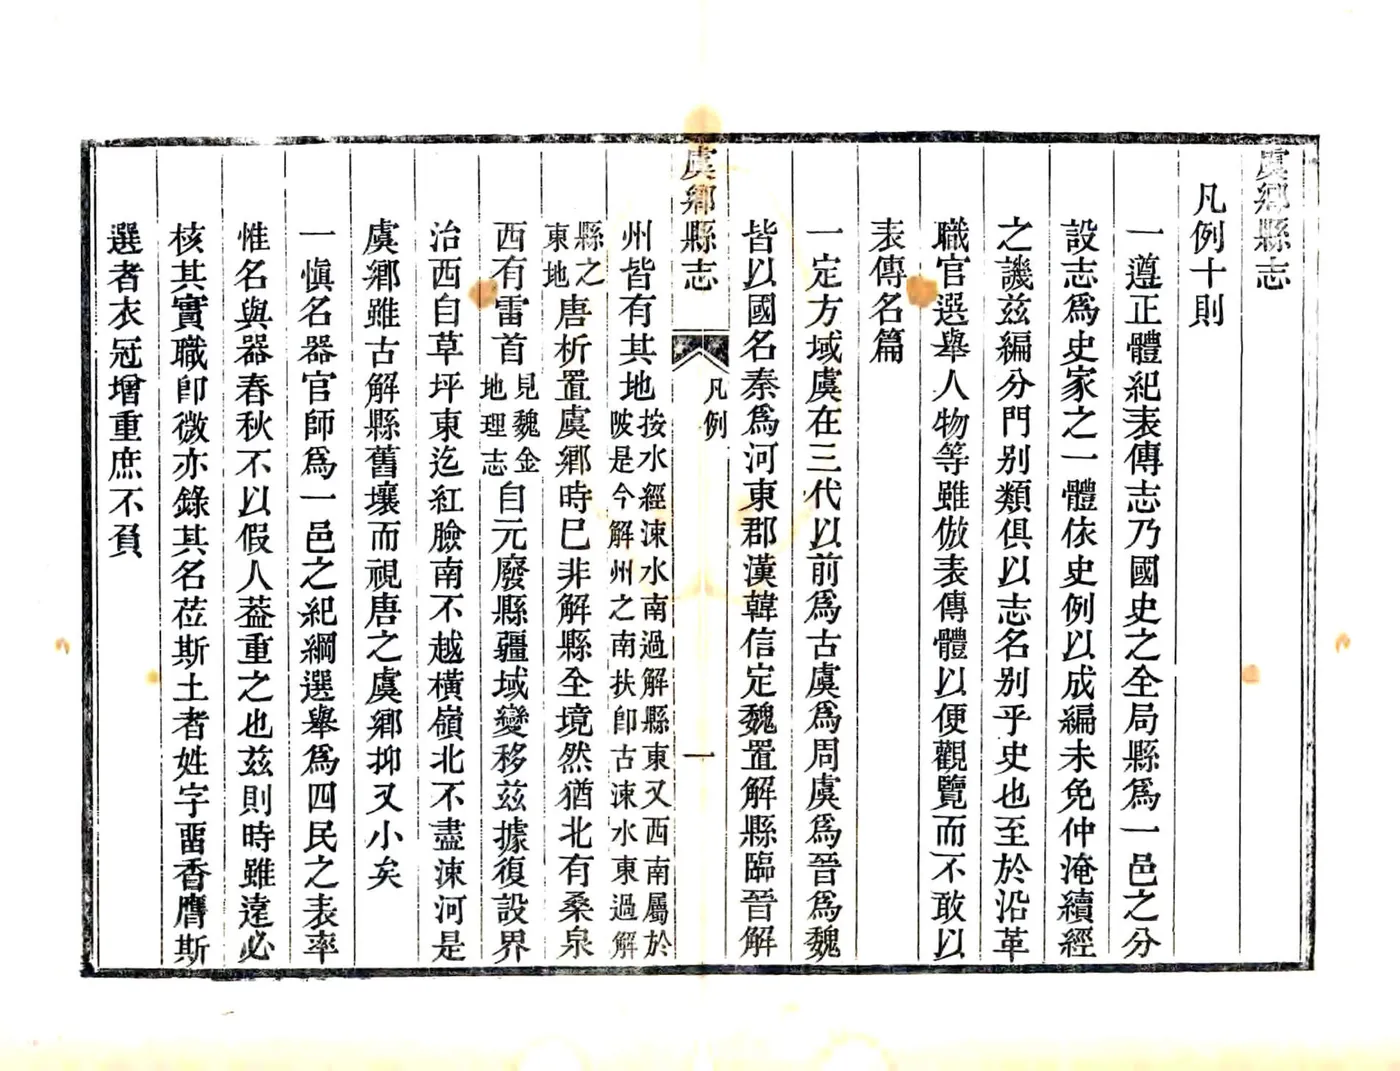 虞鄉縣志
凡例十則
一遵正體紀表傳志乃國史之全局縣爲一邑之分
設志爲史家之一體依史例以成編未免仲淹續經
之譏茲編分門别類俱以志名别乎史也至於沿革
職官選舉人物等雖倣表傳體以便觀覽而不敢以
表傳名篇
一定方域虞在三代以前爲古虞爲周虞爲晉爲魏
皆以國名秦爲河東郡漢韓信定魏置解縣臨晉解
虞鄉縣志
凡例
一
州皆有其地按水經涑水南過解縣東又西南屬於
陂是今解州之南扶卽古涑水東過解
縣之
東地唐析置虞鄉時巳非解縣全境然猶北有桑泉
西有雷首見魏金
地理志自元廢縣疆域變移茲據復設界
治西自草坪東迄紅臉南不越橫嶺北不盡涑河是
虞鄉雖古解縣舊壤而視唐之虞鄉抑又小矣
一愼名器官師爲一邑之紀綱選舉爲四民之表率
惟名與器春秋不以假人葢重之也茲則時雖遠必
核其實職卽微亦錄其名莅斯土者姓字畱香膺斯
選者衣冠增重庶不負